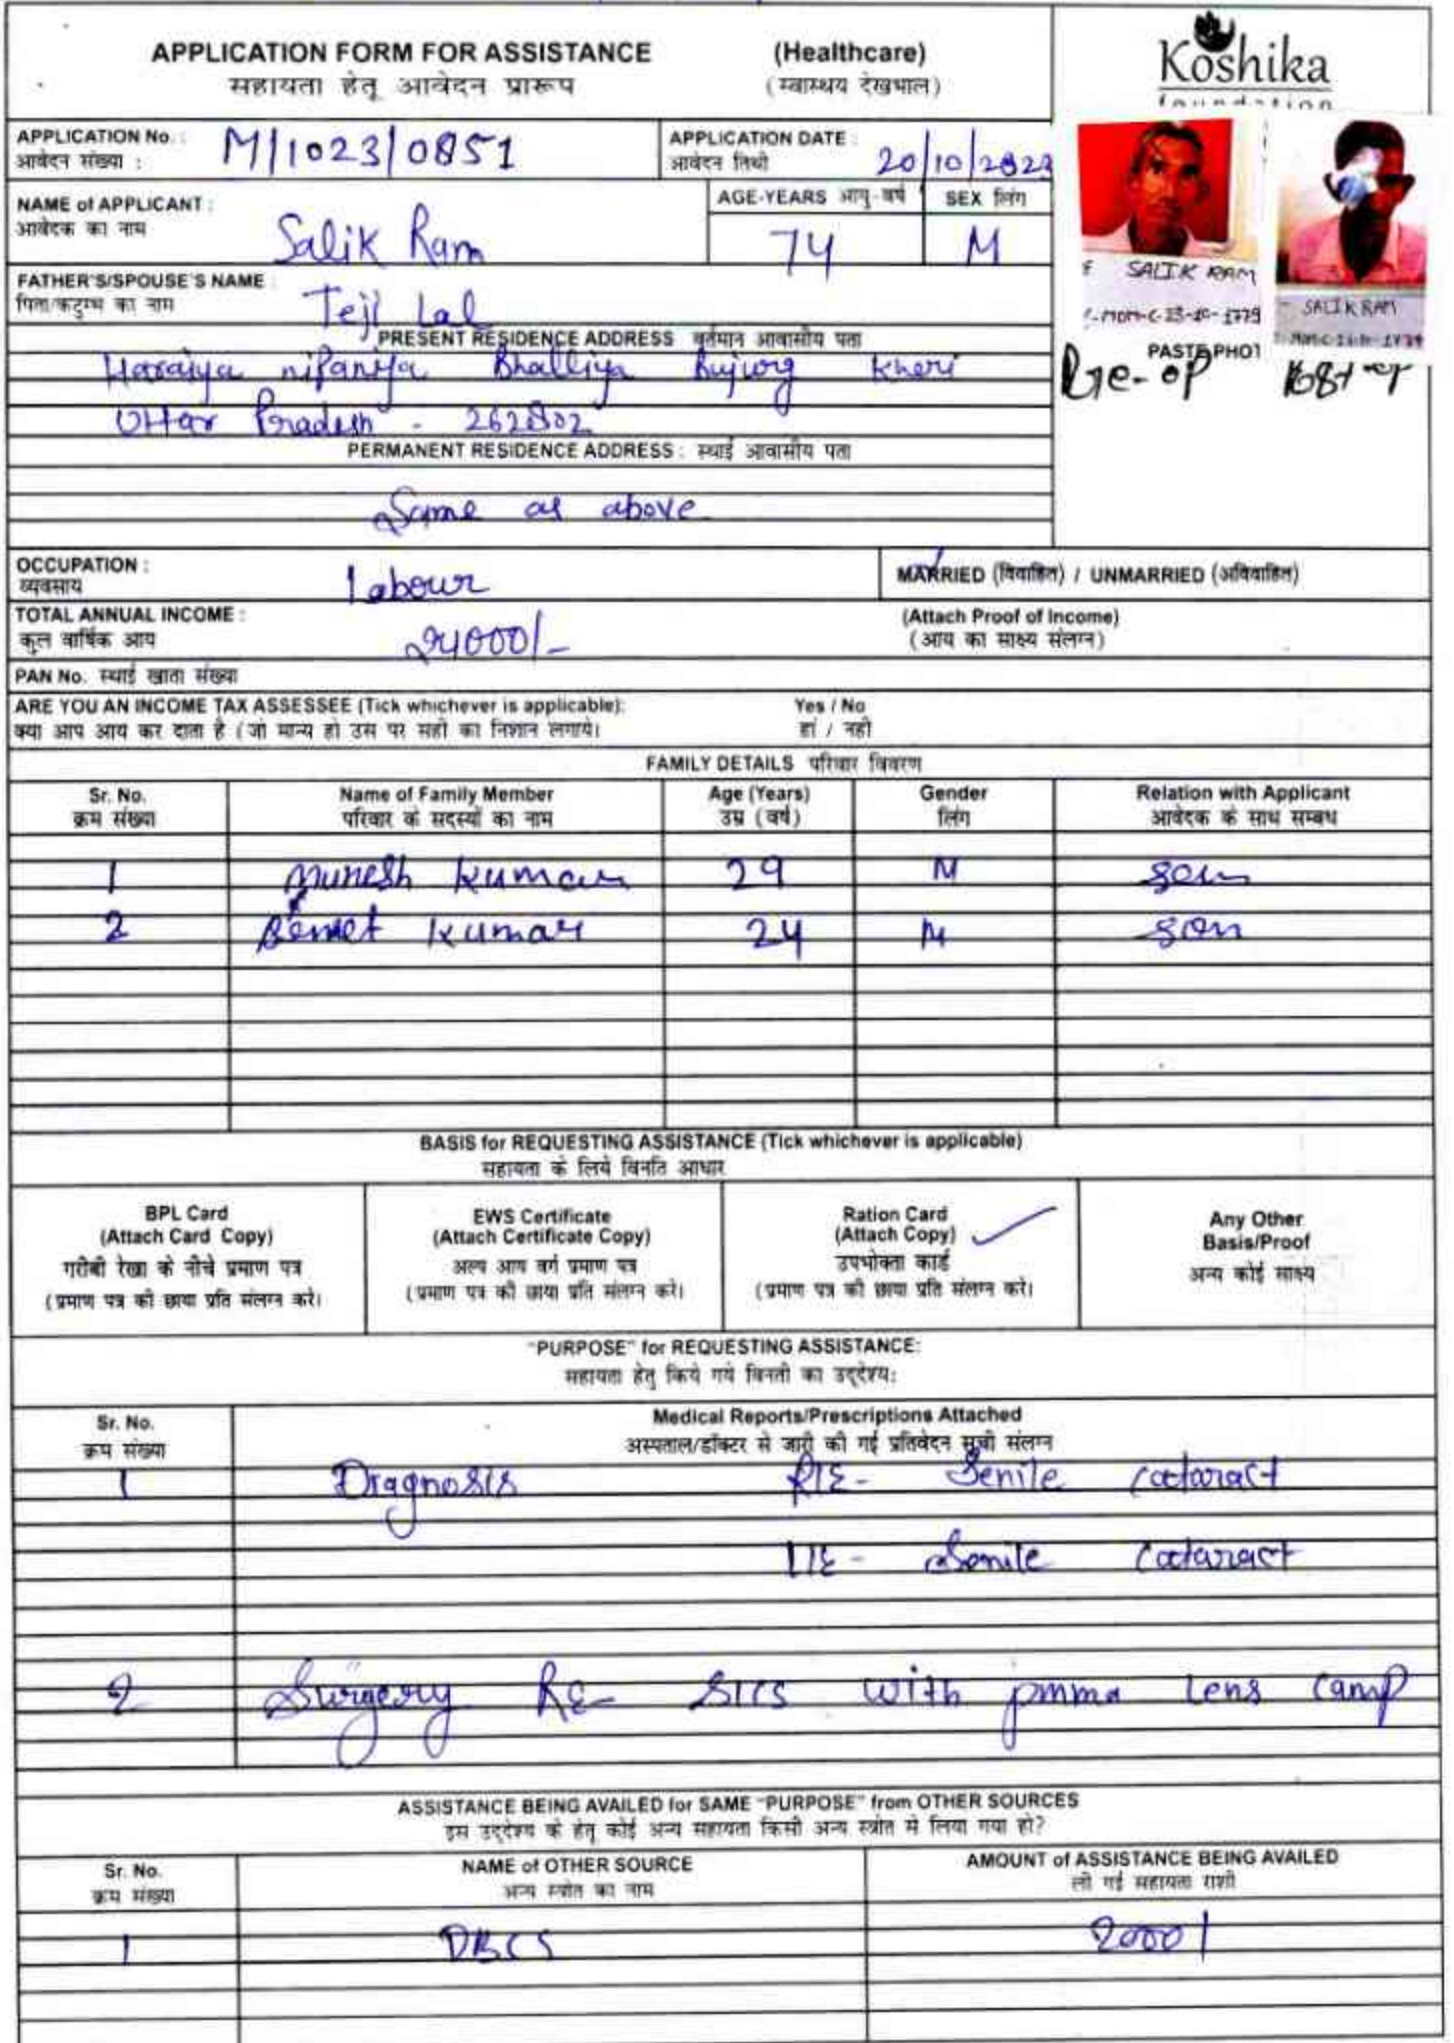 APPLICATION FORM FOR ASSISTANCE (Healthcare)
सहायता हेतू आवेदन प्रारूप (स्वास्थय देखभाल)
Koshika
foundation
APPLICATION No. : M/1023/0851
आवेदन संख्या :
APPLICATION DATE : 20/10/2023
आवेदन तिथी
NAME of APPLICANT : Salik Ram
आवेदक का नाम
AGE-YEARS आयु-वर्ष 74
SEX लिंग M
SALIK RAM
SALIK RAM
PASTE PHOT
Pre-op Post-op
FATHER'S/SPOUSE'S NAME : Teji Lal
पिता/कटुम्ब का नाम
PRESENT RESIDENCE ADDRESS वर्तमान आवासीय पता
Haraiya nipaniya Bhalliya Bujurg Kheri
Uttar Pradesh - 262802
PERMANENT RESIDENCE ADDRESS : स्थाई आवासीय पता
Same as above
OCCUPATION : Labour
व्यवसाय
MARRIED (विवाहित) / UNMARRIED (अविवाहित)
TOTAL ANNUAL INCOME : 24000/-
कुल वार्षिक आय
(Attach Proof of Income)
(आय का साक्ष्य संलग्न)
PAN No. स्थाई खाता संख्या
ARE YOU AN INCOME TAX ASSESSEE (Tick whichever is applicable): Yes / No
क्या आप आय कर दाता है (जो मान्य हो उस पर सही का निशान लगाये। हां / नही
FAMILY DETAILS परिवार विवरण
Sr. No. Name of Family Member Age (Years) Gender Relation with Applicant
क्रम संख्या परिवार के सदस्यों का नाम उम्र (वर्ष) लिंग आवेदक के साथ सम्बध
1 Munesh Kumar 29 M son
2 Kumar 24 M son
BASIS for REQUESTING ASSISTANCE (Tick whichever is applicable)
सहायता के लिये विनति आधार
BPL Card
(Attach Card Copy)
गरीबी रेखा के नीचे प्रमाण पत्र
(प्रमाण पत्र की छाया प्रति संलग्न करे।
EWS Certificate
(Attach Certificate Copy)
अल्प आय वर्ग प्रमाण पत्र
(प्रमाण पत्र की छाया प्रति संलग्न करे।
Ration Card
(Attach Copy)
उपभोक्ता कार्ड
(प्रमाण पत्र की छाया प्रति संलग्न करे।
Any Other
Basis/Proof
अन्य कोई साक्ष्य
"PURPOSE" for REQUESTING ASSISTANCE:
सहायता हेतु किये गये विनती का उद्देश्य:
Sr. No. Medical Reports/Prescriptions Attached
क्रम संख्या अस्पताल/डॉक्टर से जारी की गई प्रतिवेदन सूची संलग्न
1 Diagnosis R/E- Senile Cataract
L/E - Senile Cataract
2 Surgery RE- SICS with pmma Lens Camp
ASSISTANCE BEING AVAILED for SAME "PURPOSE" from OTHER SOURCES
इस उद्देश्य के हेतू कोई अन्य सहायता किसी अन्य स्त्रोत से लिया गया हो?
Sr. No. NAME of OTHER SOURCE AMOUNT of ASSISTANCE BEING AVAILED
क्रम संख्या अन्य स्त्रोत का नाम ली गई सहायता राशी
1 DBCS 2000/